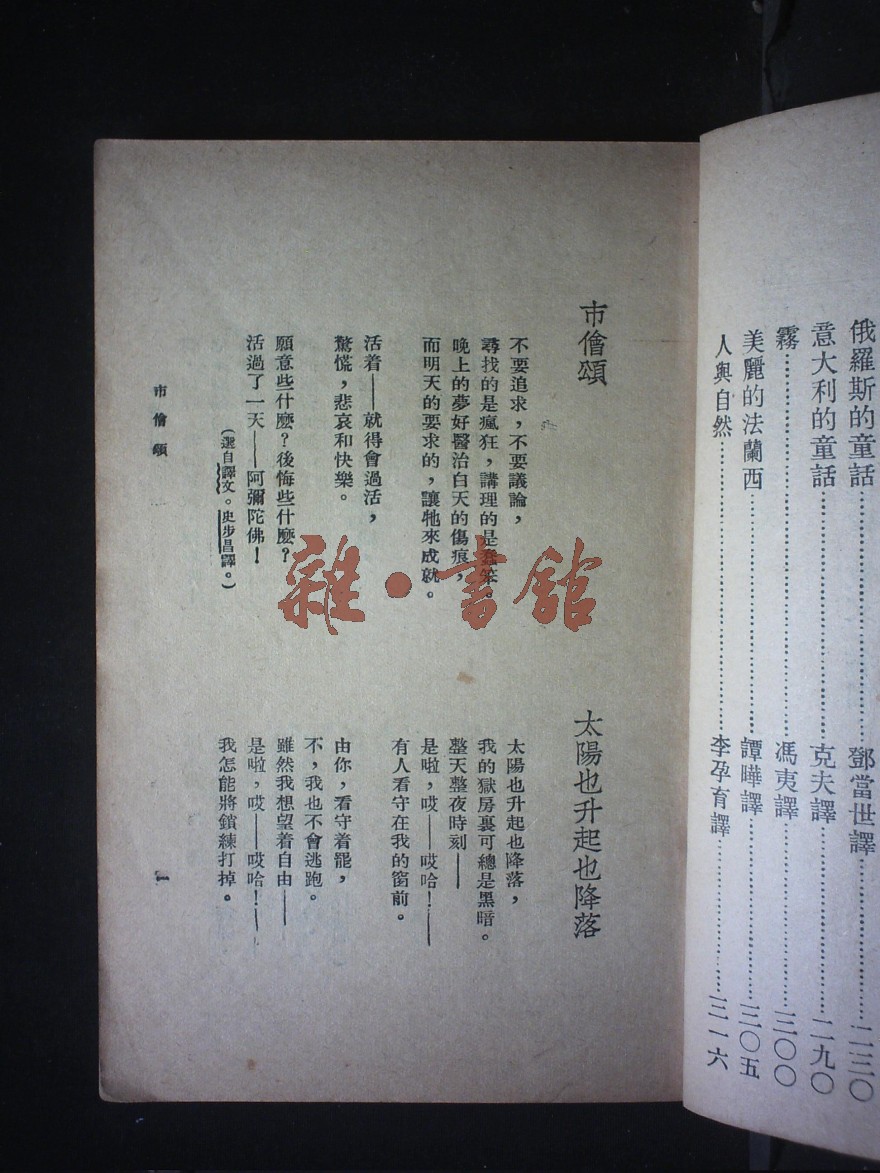 俄羅斯的童話……鄧當世譯……二三〇
意大利的童話……克夫譯……二九〇
霧……馮夷譯……三〇〇
美麗的法蘭西……譚曄譯……三〇五
人與自然……李孕育譯……三一六
市儈頌
不要追求，不要議論，
尋找的是瘋狂，講理的是蠢笨。
晚上的夢好醫治白天的傷痕，
而明天的要求的，讓牠來成就。
活着——就得會過活，
驚慌，悲哀和快樂。
願意些什麼？後悔些什麼？
活過了一天——阿彌陀佛！
（選自譯文。史步昌譯。）
太陽也升起也降落
太陽也升起也降落，
我的獄房裏可總是黑暗。
整天整夜時刻——
是啦，哎——哎哈！——
有人看守在我的窗前。
由你，看守着罷，
不，我也不會逃跑。
雖然我想望着自由——
是啦，哎——哎哈！——
我怎能將鎖練打掉。
市儈頌
一
雜·書館